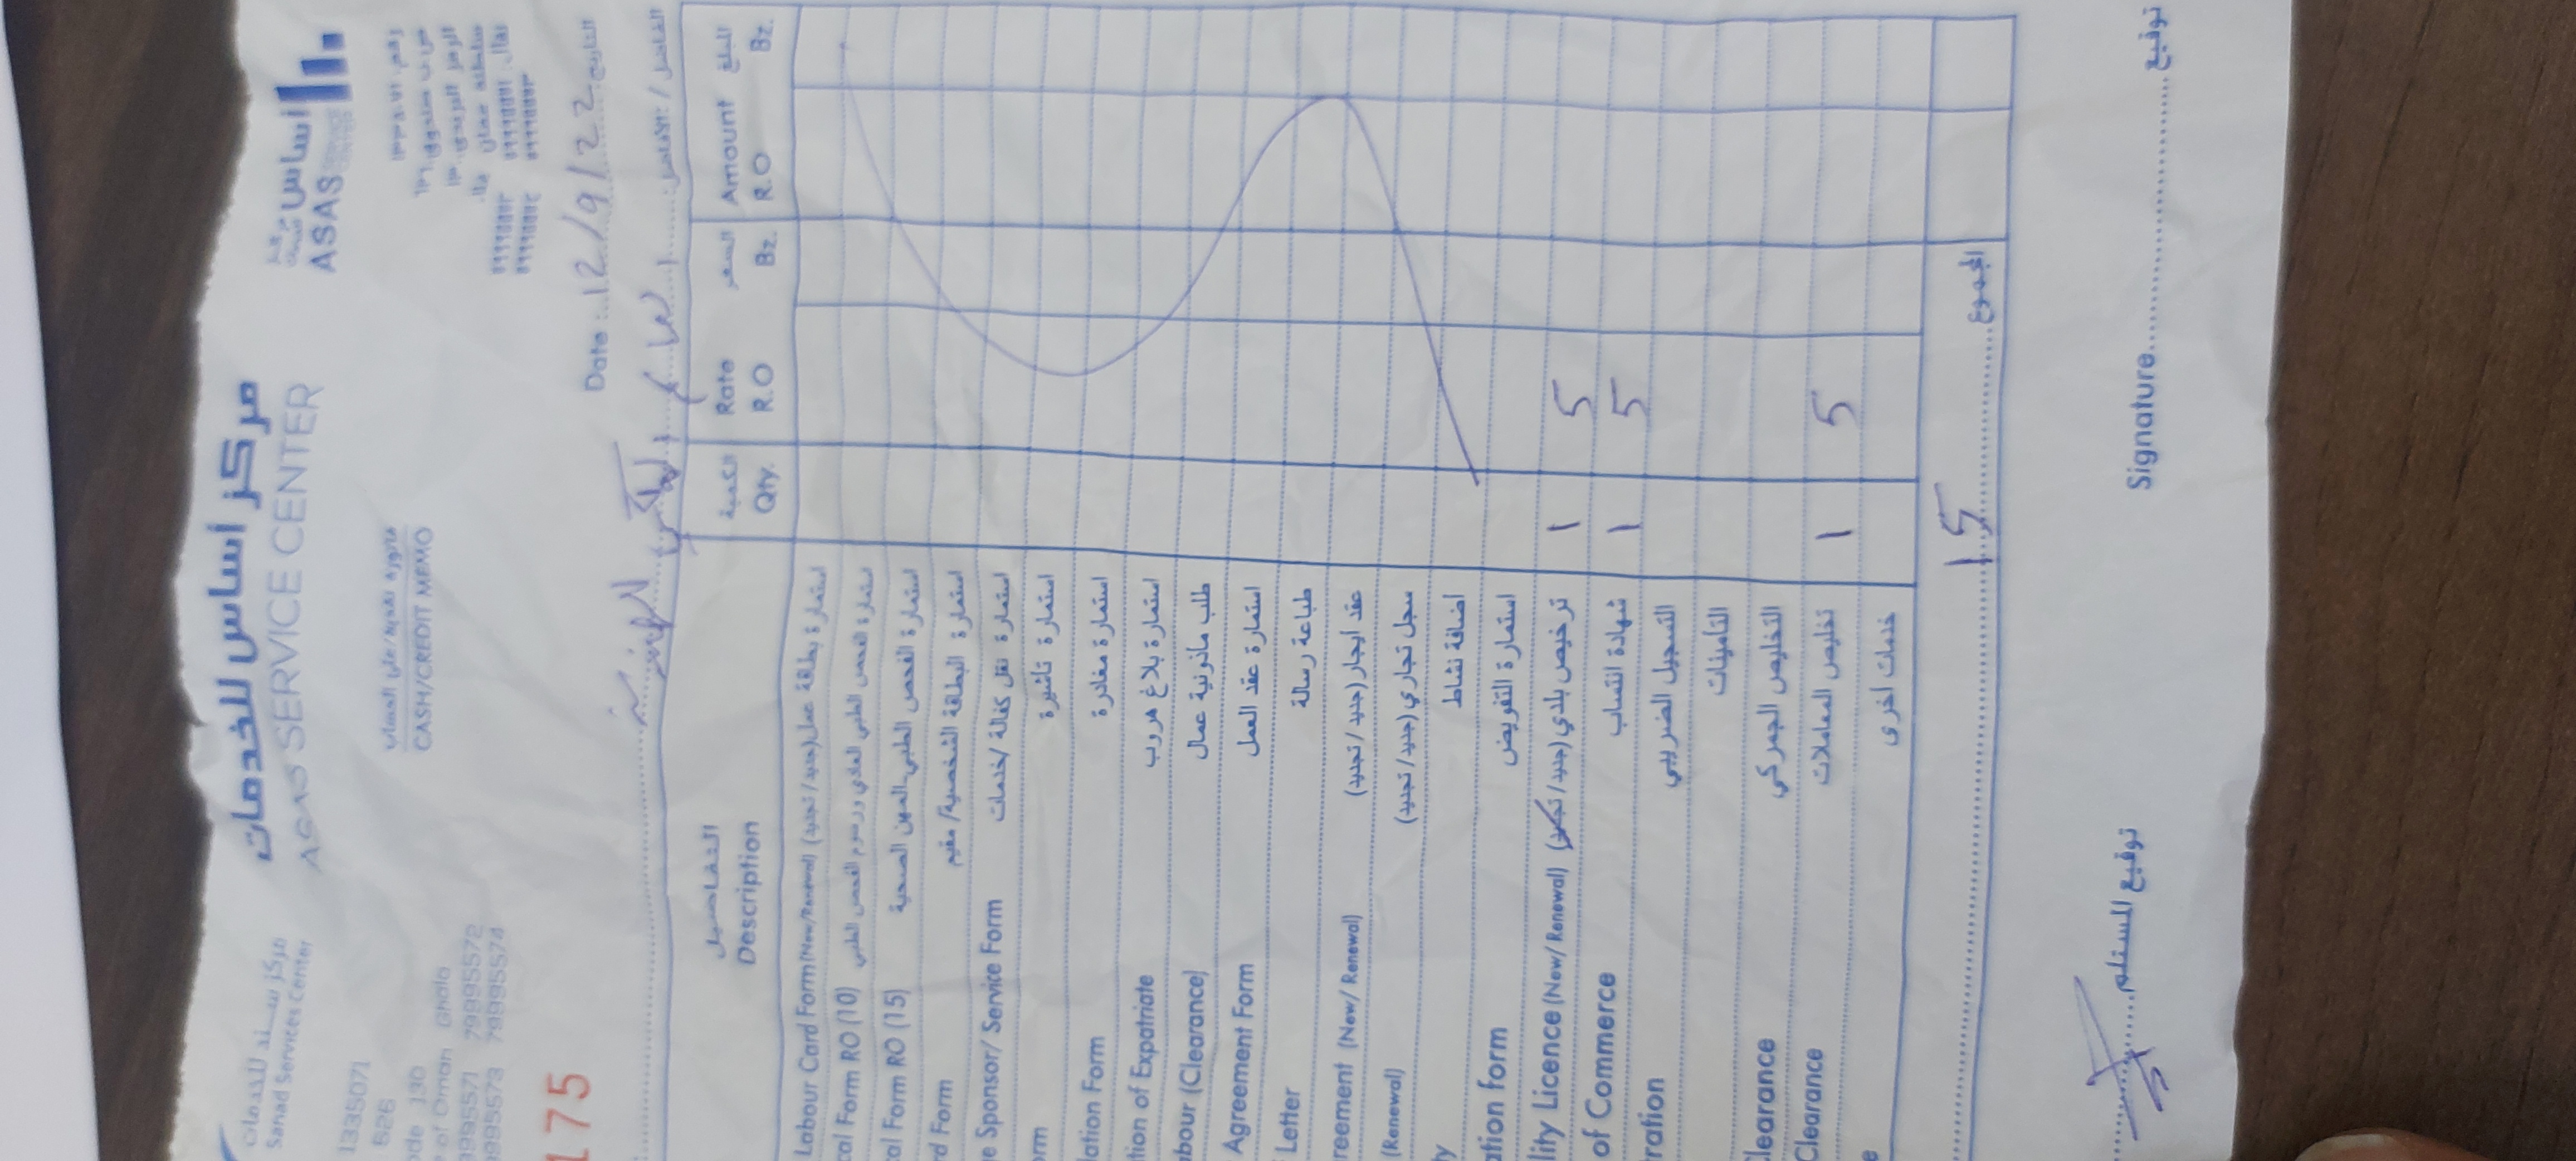 مركز ســـند للخدمات
Sanad Services Center
مركز أساس للخدمات
ASAS SERVICE CENTER
أساس
ASAS
1335071
826
ode 130
e of Oman Ghala
99995571 79995572
99995573 79995574
CASH/CREDIT MEMO
175
Date : 12/9/22 التاريخ
الفاضل / الأفاضل
التفاصيل
Description
الكمية
Qty.
السعر
Rate
R.O Bz.
المبلغ
Amount
R.O Bz.
Labour Card Form (New/Renewal) استمارة بطاقة عمل (جديد / تجديد)
cal Form RO (10) استمارة الفحص الطبي العادي ورسوم الفحص الطبي
al Form RO (15) استمارة الفحص الطبي-المهن الصحية
d Form استمارة البطاقة الشخصية/ مقيم
e Sponsor/ Service Form استمارة نقل كفالة /خدمات
orm استمارة تأشيرة
lation Form استمارة مغادرة
tion of Expatriate استمارة بلاغ هروب
abour (Clearance) طلب مأذونية عمال
Agreement Form استمارة عقد العمل
Letter طباعة رسالة
reement (New/ Renewal) عقد ايجار (جديد / تجديد)
(Renewal) سجل تجاري (جديد / تجديد)
ty اضافة نشاط
ation form استمارة التفويض
lity Licence (New/ Renewal) ترخيص بلدي (جديد / تجديد) 1 5
of Commerce شهادة انتساب 1 5
tration التسجيل الضريبي
التأمينات
Clearance التخليص الجمركي
Clearance تخليص المعاملات 1 5
e خدمات اخرى
15 المجموع
توقيع المستلم
Signature توقيع